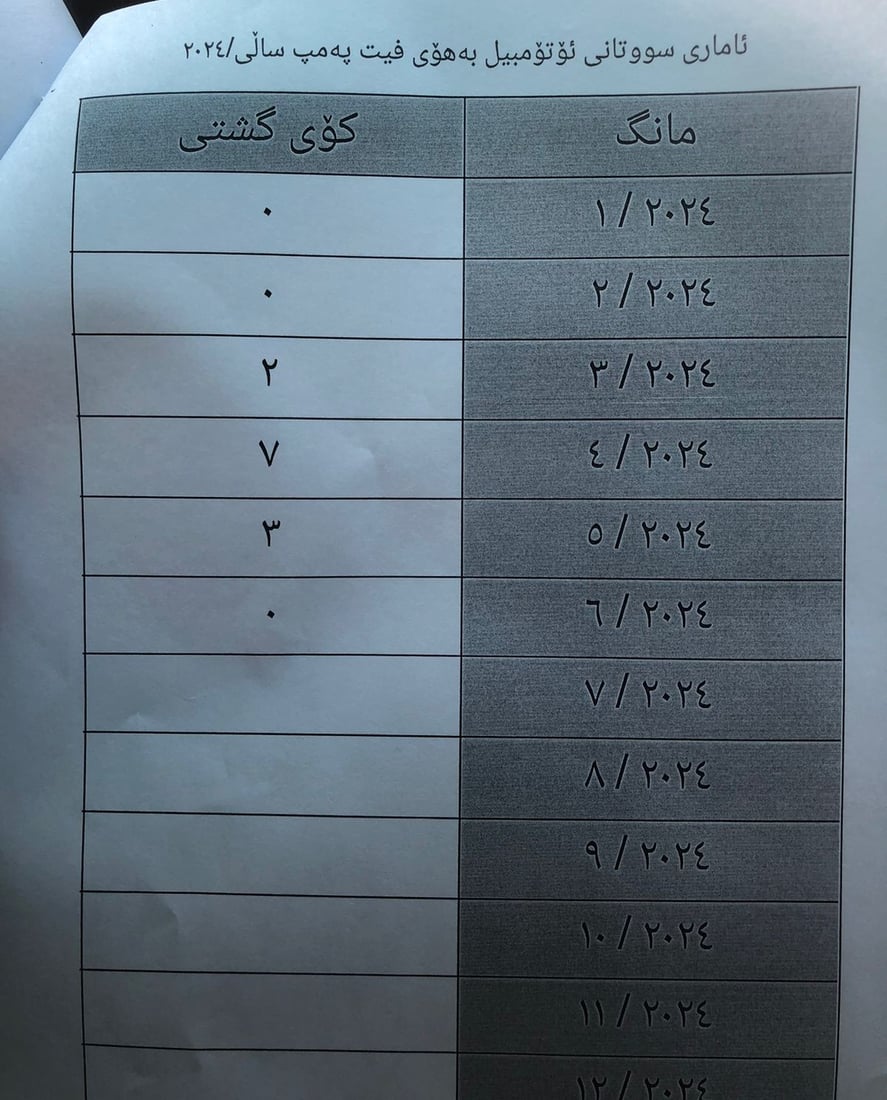 ئاماری سووتانی ئۆتۆمبیل بەهۆی فیت پەمپ ساڵی/٢٠٢٤
مانگ کۆی گشتی
١ / ٢٠٢٤ ٠
٢ / ٢٠٢٤ ٠
٣ / ٢٠٢٤ ٢
٤ / ٢٠٢٤ ٧
٥ / ٢٠٢٤ ٣
٦ / ٢٠٢٤ ٠
٧ / ٢٠٢٤
٨ / ٢٠٢٤
٩ / ٢٠٢٤
١٠ / ٢٠٢٤
١١ / ٢٠٢٤
١٢ / ٢٠٢٤